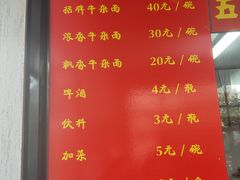 招牌牛杂面 40元/碗
五
浓香牛杂面 30元/碗
飘香牛杂面 20元/碗
啤酒 4元/瓶
饮料 3元/瓶
加菜 5元/碗